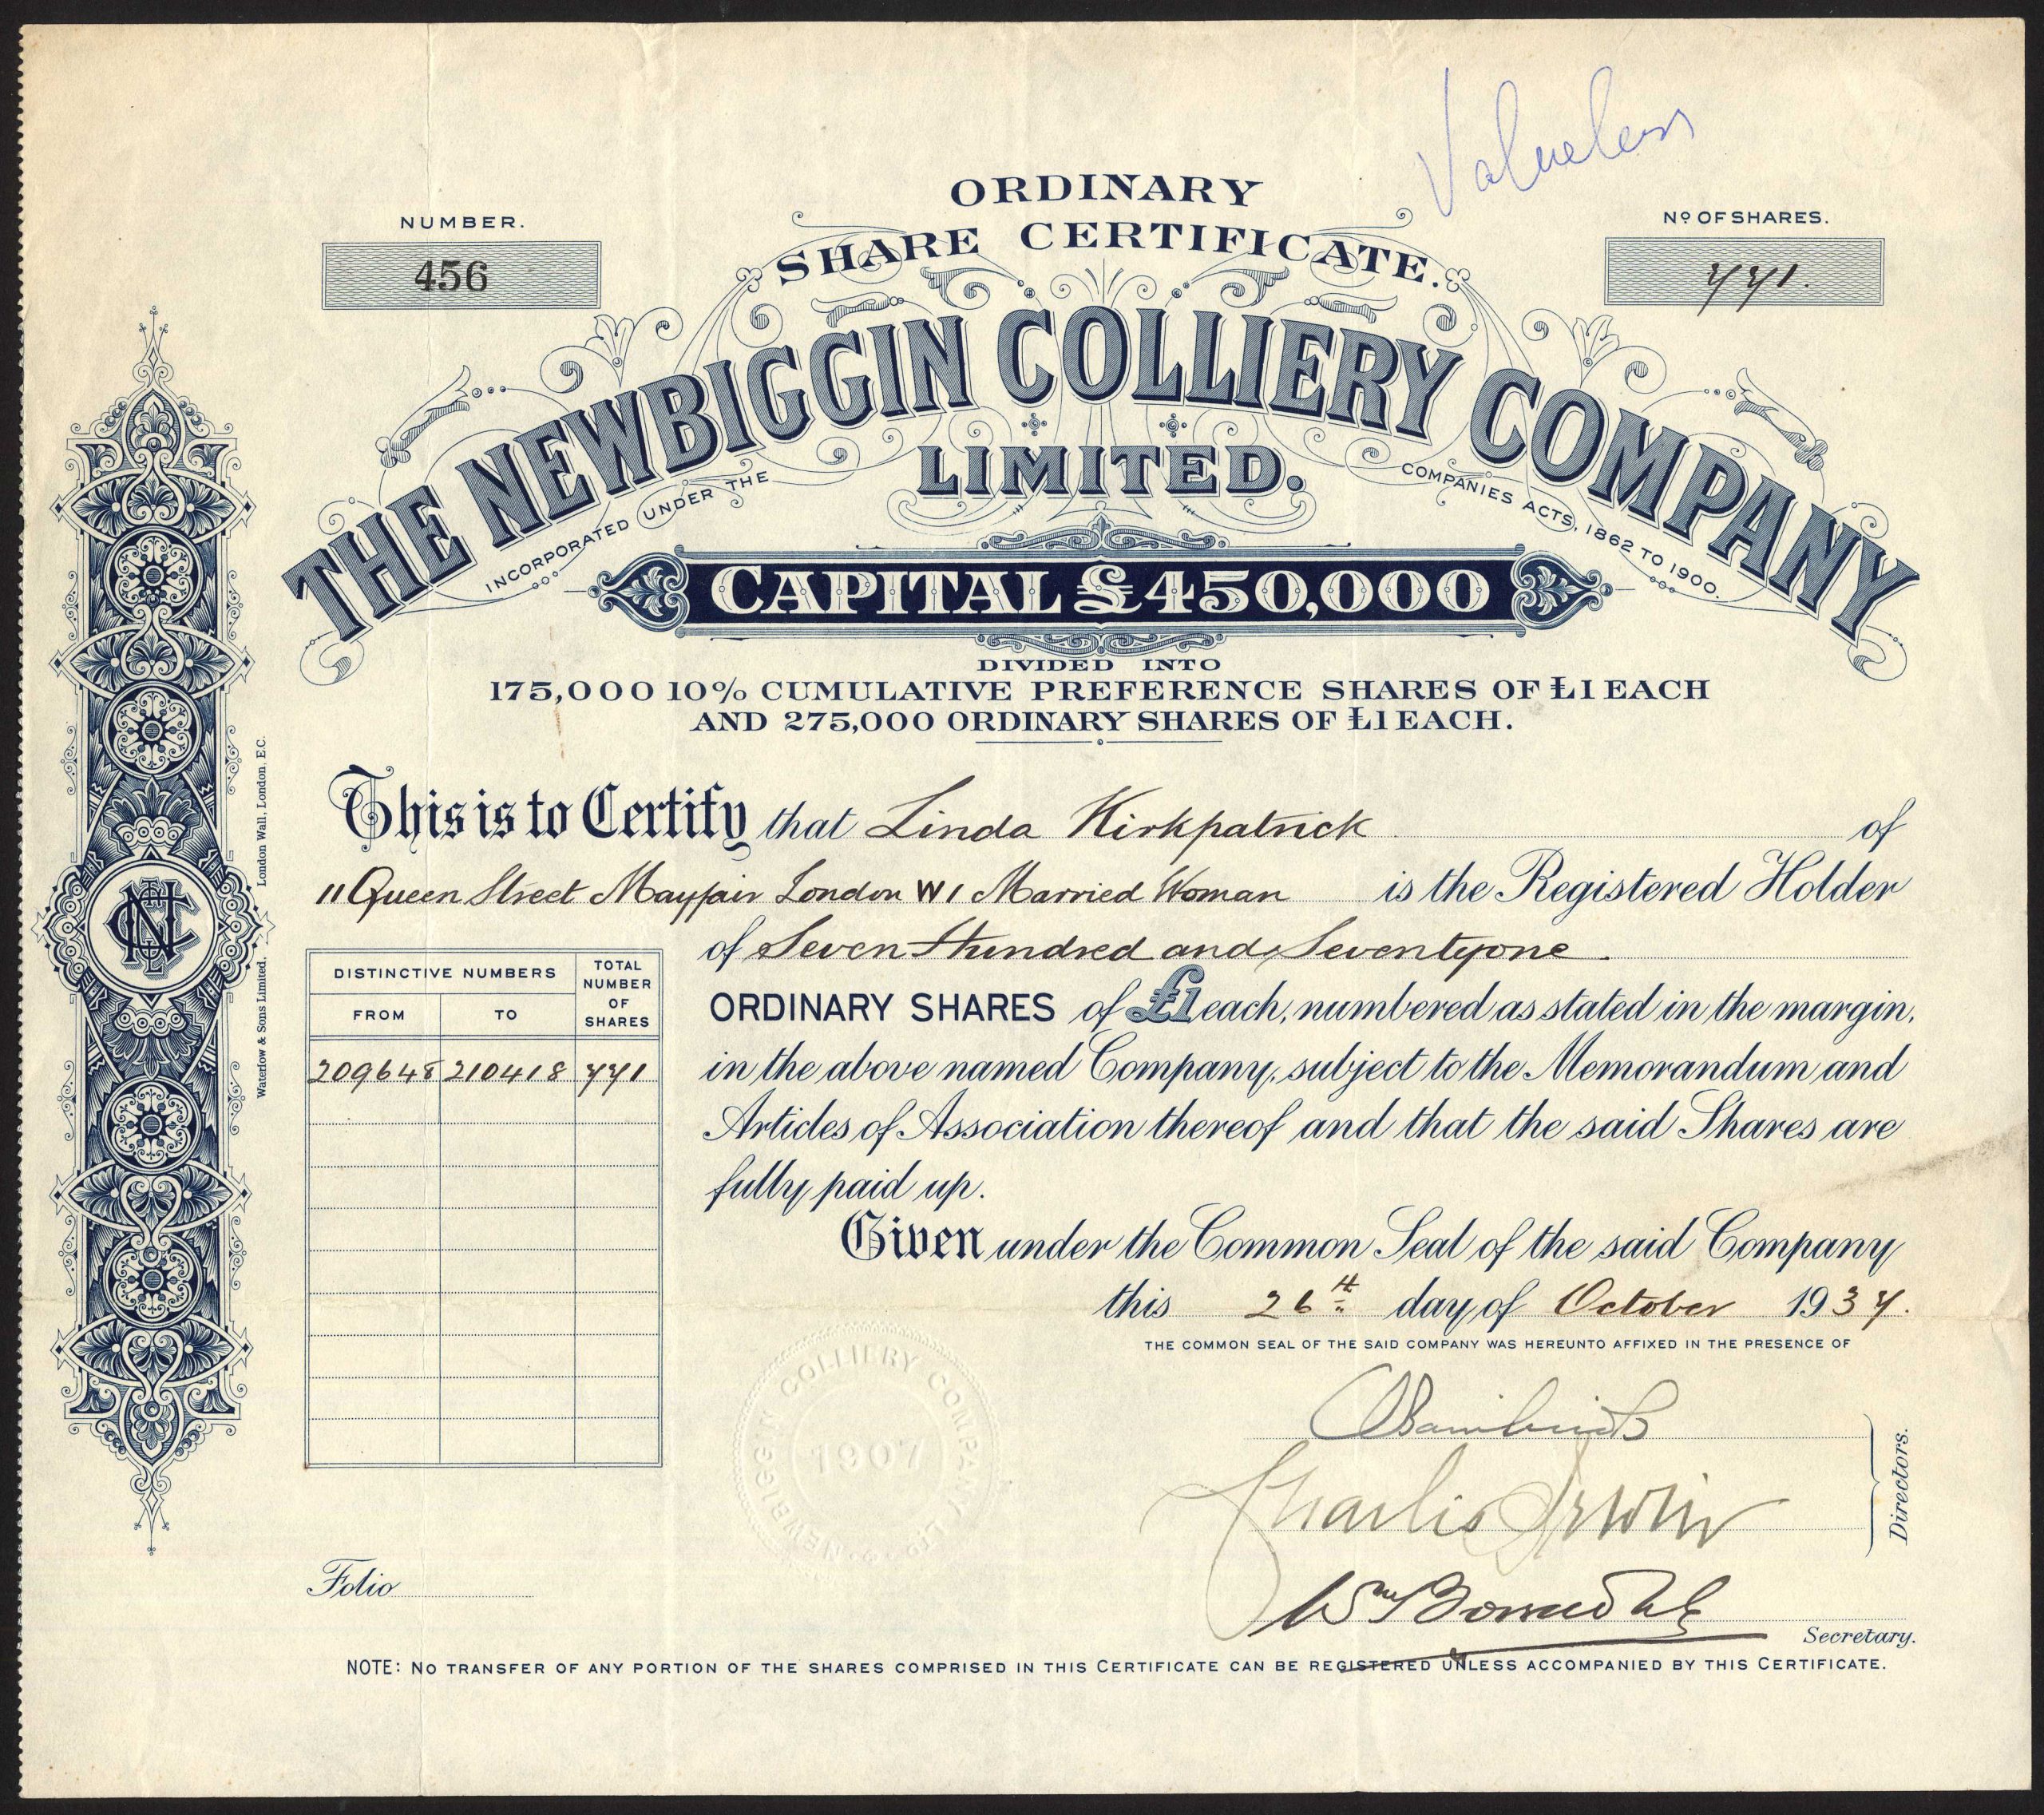 Valueless
ORDINARY
SHARE CERTIFICATE.
NUMBER.
456
Nº OF SHARES.
771.
THE NEWBIGGIN COLLIERY COMPANY
LIMITED.
INCORPORATED UNDER THE COMPANIES ACTS, 1862 TO 1900.
CAPITAL £450,000
DIVIDED INTO
175,000 10% CUMULATIVE PREFERENCE SHARES OF £1 EACH
AND 275,000 ORDINARY SHARES OF £1 EACH.
This is to Certify that Linda Kirkpatrick of
11 Queen Street Mayfair London W1 Married Woman is the Registered Holder
of Seven Hundred and Seventyone.
ORDINARY SHARES of £1 each, numbered as stated in the margin,
in the above named Company, subject to the Memorandum and
Articles of Association thereof and that the said Shares are
fully paid up.
Given under the Common Seal of the said Company
this 26th day of October 1937.
THE COMMON SEAL OF THE SAID COMPANY WAS HEREUNTO AFFIXED IN THE PRESENCE OF
Charlie Irwin
Directors.
Wm
Secretary.
DISTINCTIVE NUMBERS
TOTAL NUMBER OF SHARES
FROM TO
209648 210418 771
NEWBIGGIN COLLIERY COMPANY LTD
1907
Folio
NOTE: NO TRANSFER OF ANY PORTION OF THE SHARES COMPRISED IN THIS CERTIFICATE CAN BE REGISTERED UNLESS ACCOMPANIED BY THIS CERTIFICATE.
Waterlow & Sons Limited, London Wall, London, E.C.